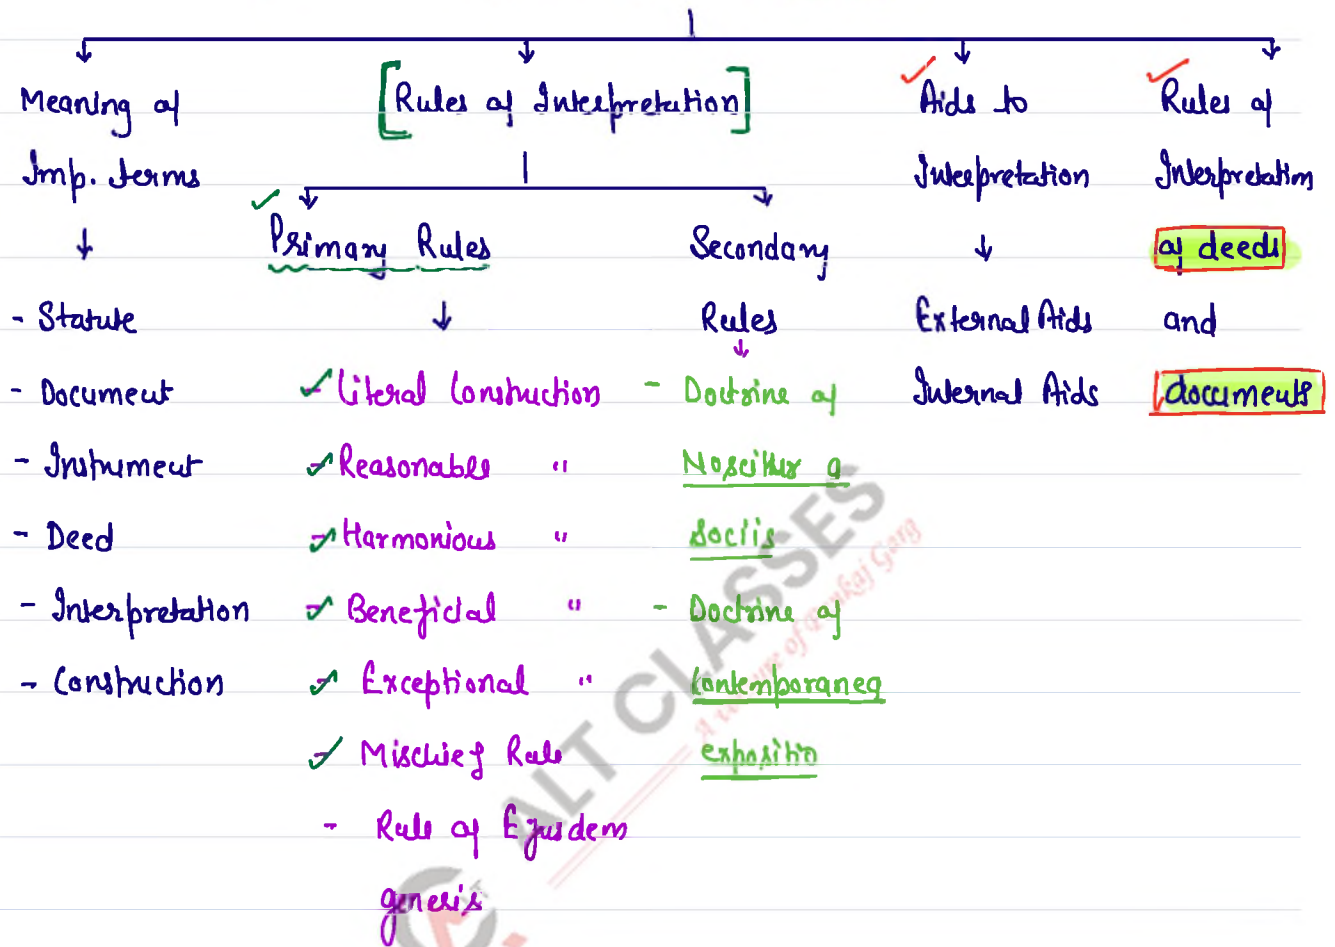 Meaning of
Imp. terms
- Statute
- Document
- Instrument
- Deed
- Interpretation
- Construction
[Rules of Interpretation]
Primary Rules
Literal Construction
Reasonable "
Harmonious "
Beneficial "
Exceptional "
Mischief Rule
- Rule of Ejusdem
genesis
Secondary
Rules
- Doctrine of
Noscitur a
Sociis
- Doctrine of
Contemporanea
expositio
Aids to
Interpretation
External Aids
Internal Aids
Rules of
Interpretation
of deeds
and
documents
ALT CLASSES
A venture of Pankaj Garg